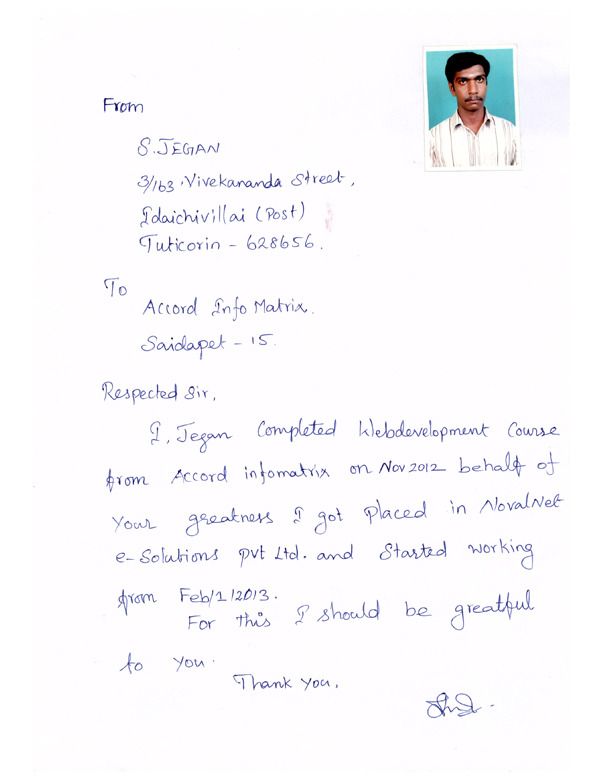 From
S. JEGAN
3/163, Vivekananda Street,
Idaichivillai (Post)
Tuticorin - 628656.
To
Accord Info Matrix.
Saidapet - 15.
Respected Sir,
I, Jegan Completed Webdevelopment Course
from Accord infomatrix on Nov 2012 behalf of
your greatness I got placed in NovalNet
e-Solutions pvt Ltd. and Started working
from Feb/1/2013.
For this I should be greatful
to you.
Thank you,